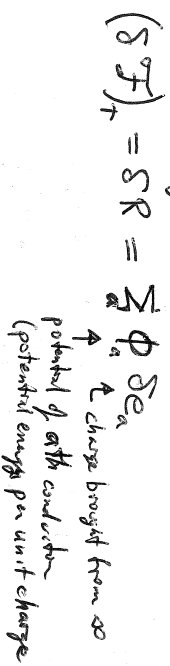 (δℱ)_T = δR = Σ_a ϕ_a δe_a
↑ charge brought from ∞
↑
potential of ath conductor
(potential energy per unit charge